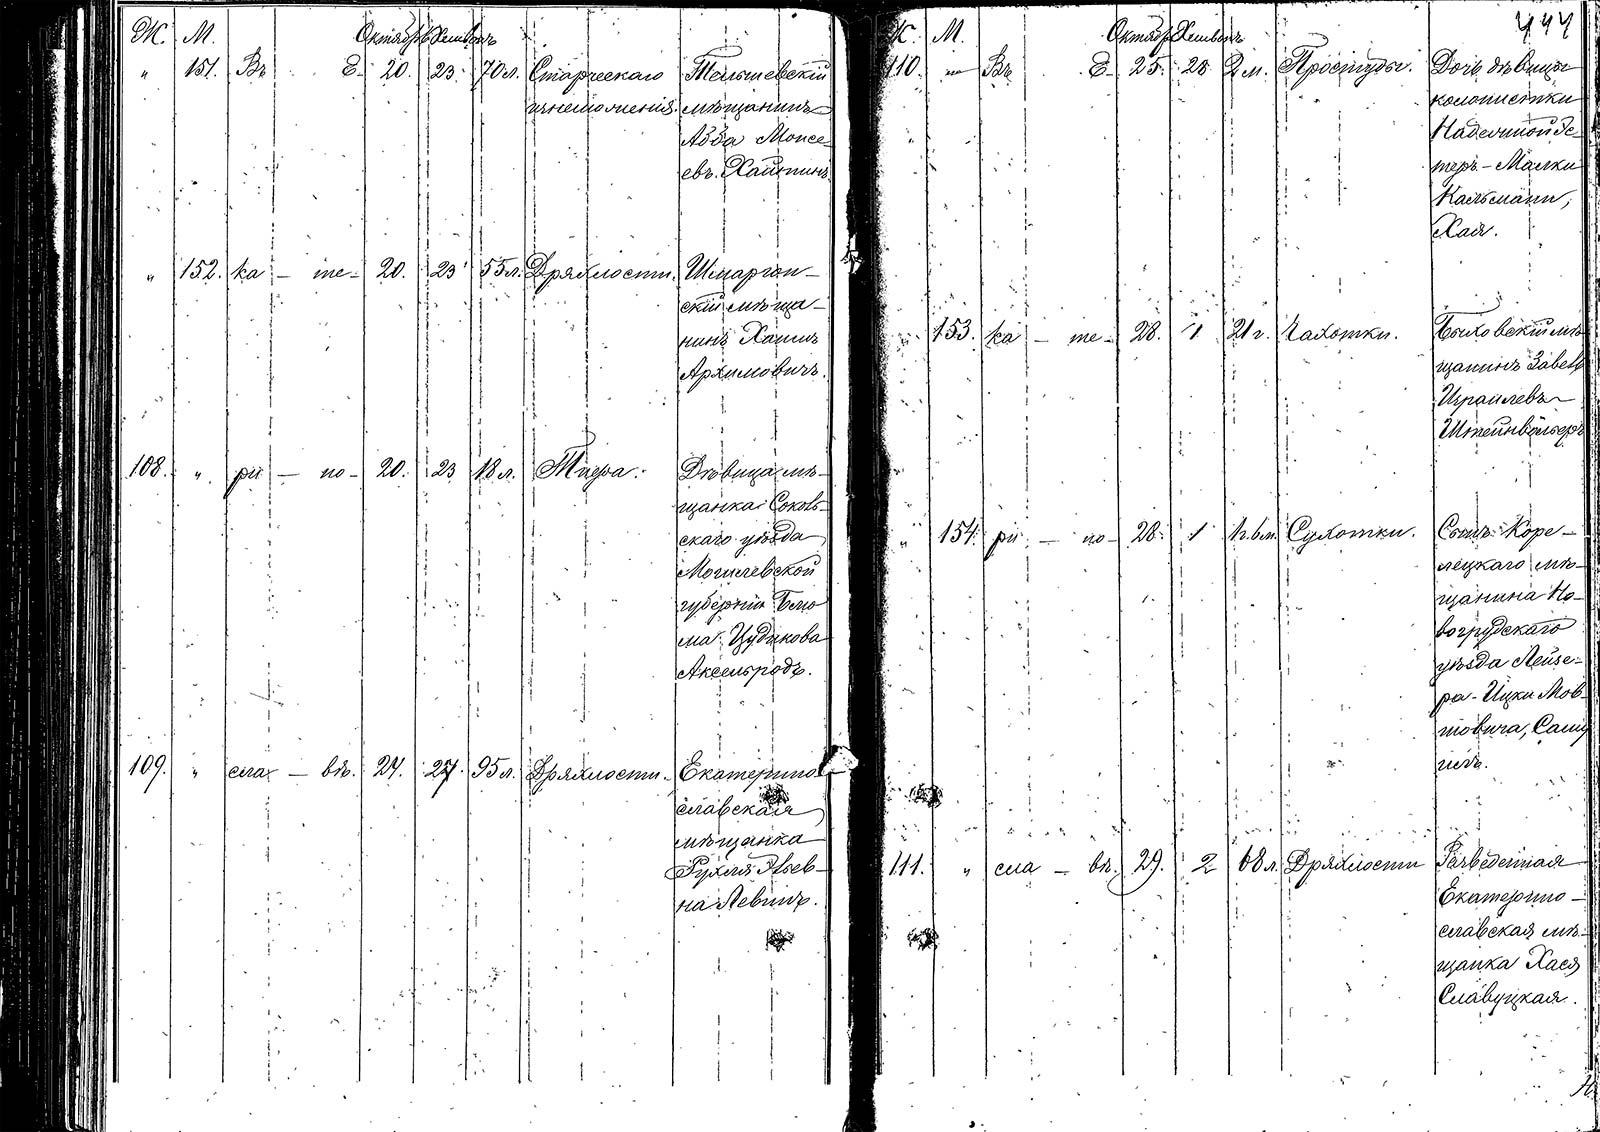 Ж. М. Октябрь Хешвонъ
„ 151. Въ Е- 20. 23. 70 л. Старческаго Тельшевскій
изнеможенія. мѣщанинъ
Абба Моисе-
евъ Хайтинъ
„ 152. ка - те- 20. 23 55 л. Дряхлости. Шмаргон-
скій мѣща-
нинъ Хаимъ
Архимовичъ.
108. „ ри - но- 20. 23 18 л. Тифа. Дѣвица мѣ-
щанка
скаго уѣзда
Могилевской
губерніи Блю
ма Цудикова
Аксельродъ.
109. „ сла - вѣ. 24. 27. 95 л. Дряхлости. Екатерино-
славская
мѣщанка
Рухля
на Левинъ.
444
Ж. М. Октябрь Хешвонъ
110. „ Въ Е- 25. 28 2 м. Простуды. Дочь дѣвицы
колонистки
Эс-
теръ-Малки
Кальманъ,
Хая.
153. ка - те- 28. 1 21 г. Чахотки. Быховскій мѣ-
щанинъ
Израилевъ
„ 154. ри - но- 28. 1 1 г. 6 м. Сухотки. Сынъ Коре-
лецкаго мѣ-
щанина Но-
вогрудскаго
уѣзда Лейзе-
ра-Ицки Мов-
шовича, Саму
илъ.
111. „ сла - вѣ. 29. 2 68 л. Дряхлости Разведенная
Екатерино-
славская мѣ-
щанка Хася
Славуцкая.